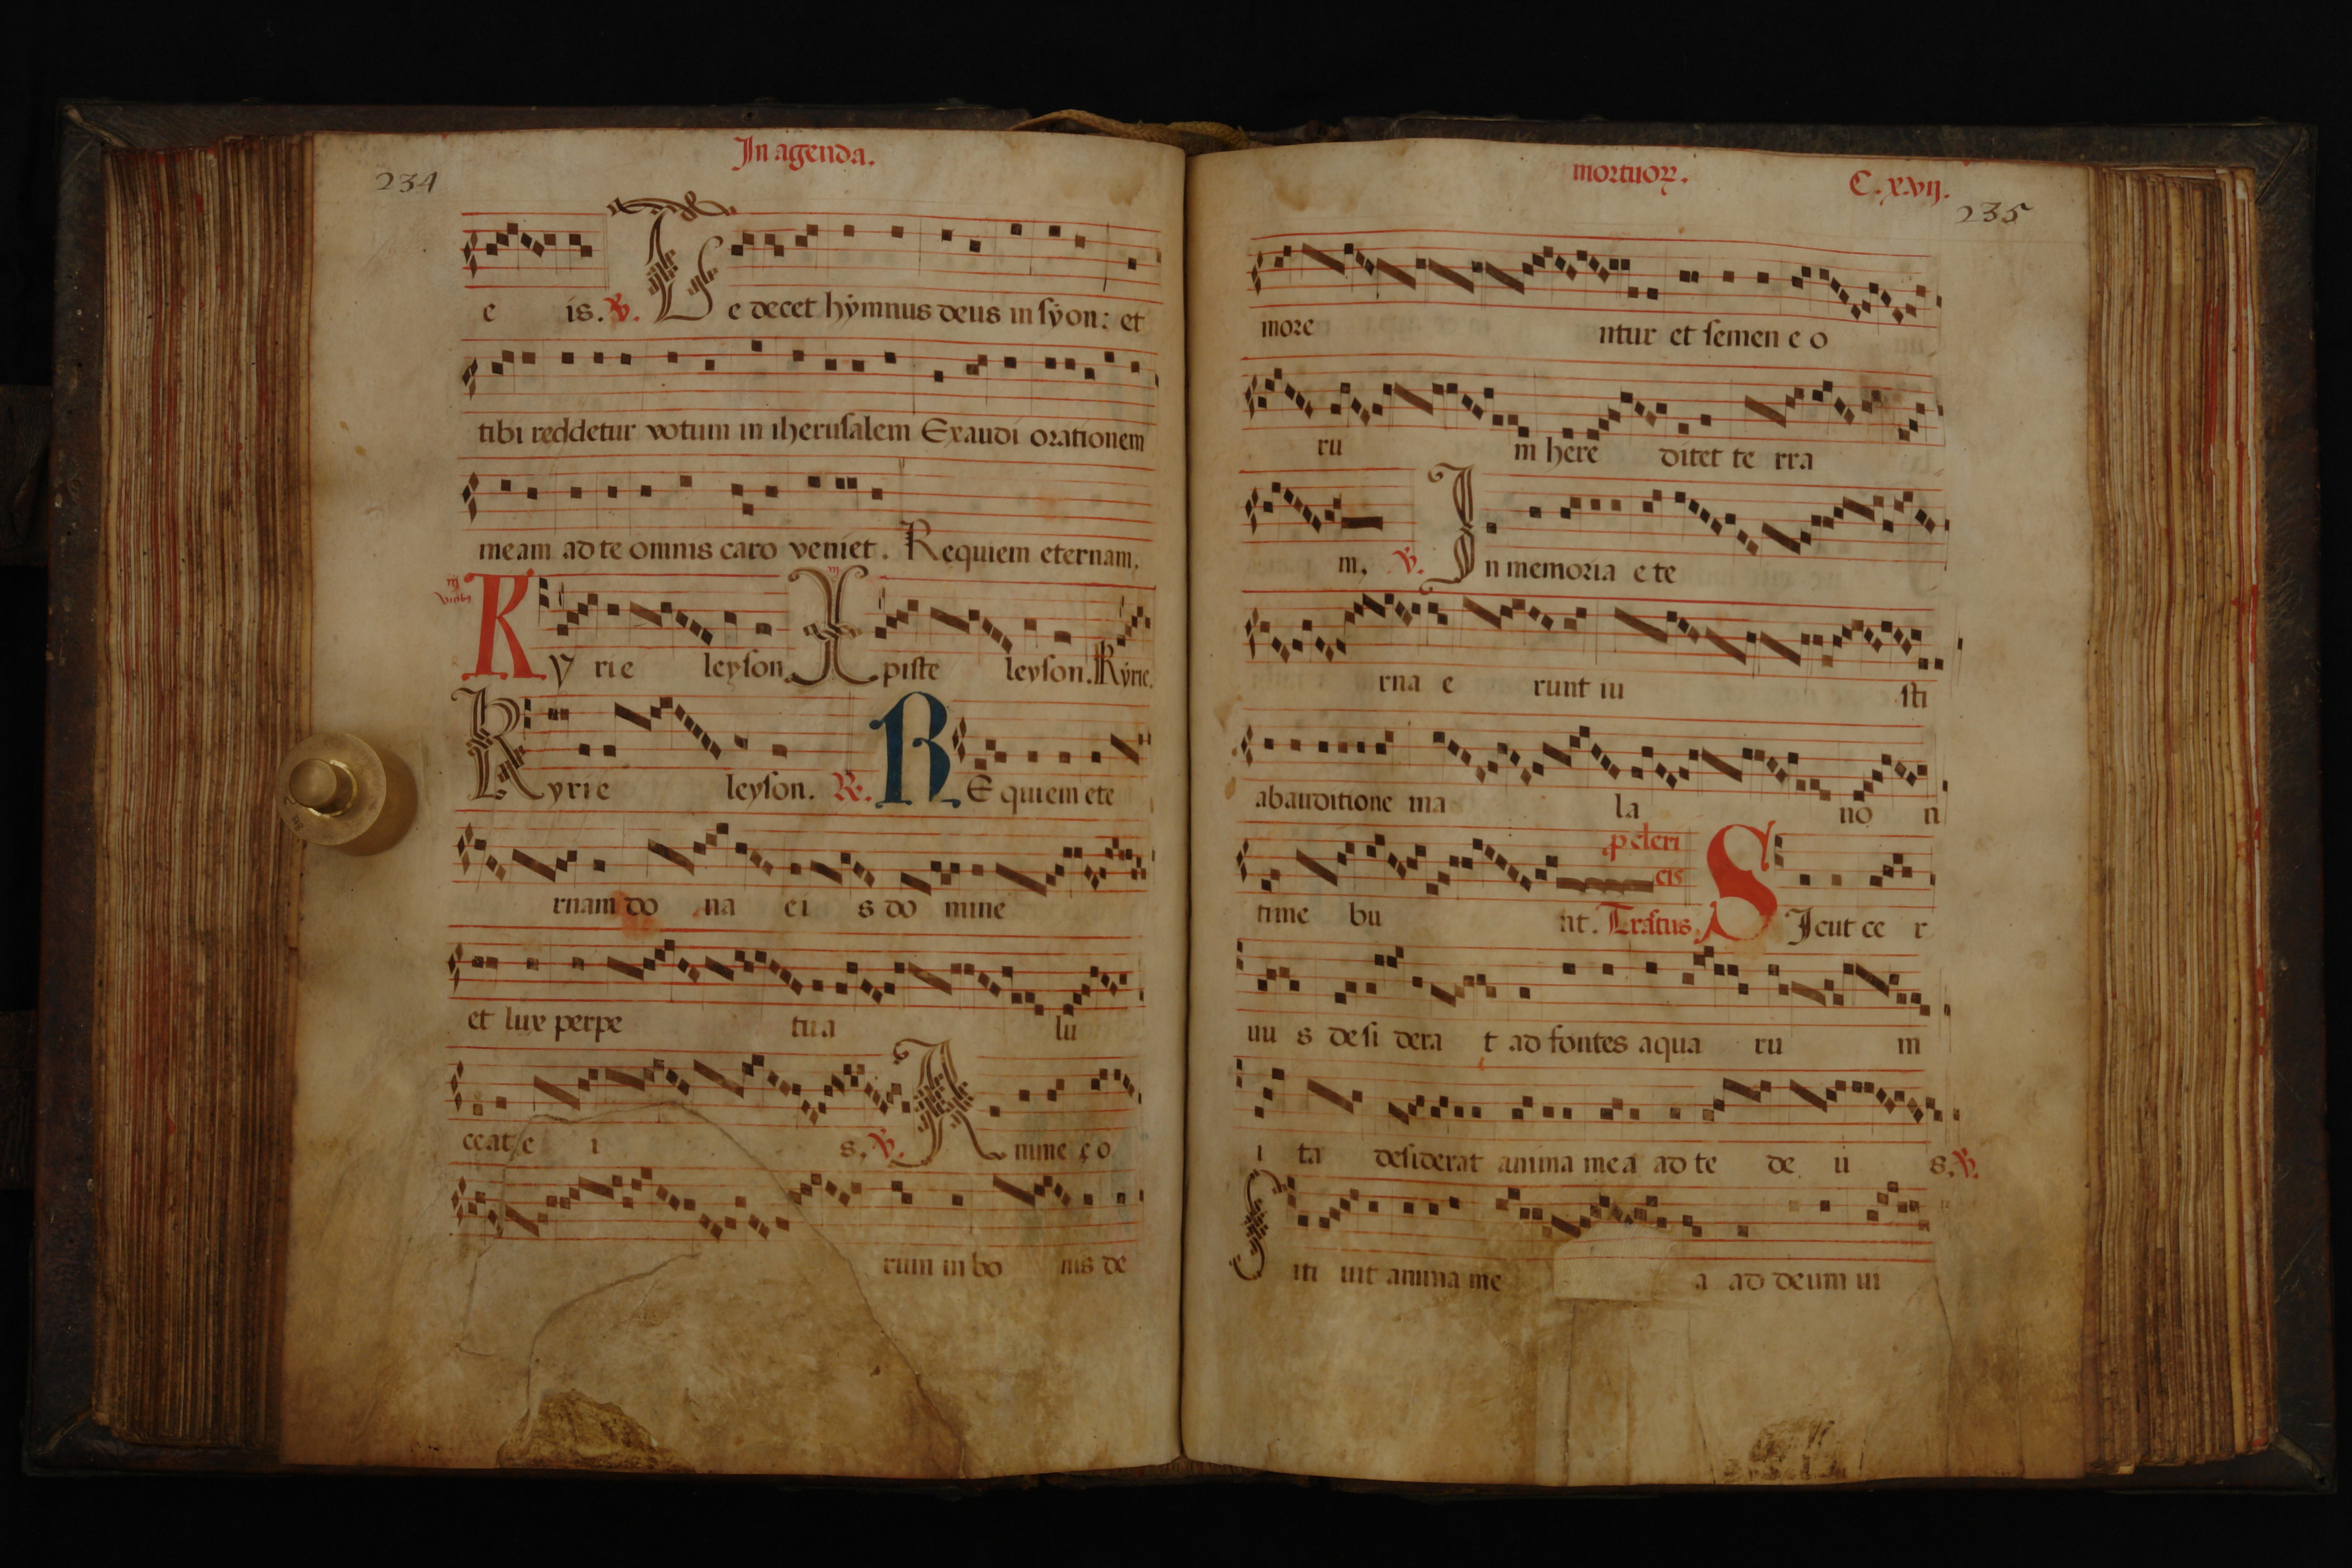 In agenda.
234
e is. ℣. Te decet hẏmnus deus in sẏon: et
tibi reddetur votum in iherusalem Exaudi orationem
meam ad te omnis caro veniet. Requiem eternam,
Ky rie leyson. Xpiste leyson. Kẏrie.
Kyrie leyson. ℟. REquiem ete
rnam do na ei s do mine
et lux perpe tua lu
ceat e i s. ℣. Anime eo
rum in bo nis de
mortuoꝝ. C.xvij.
235
more ntur et semen e o
ru m here ditet te rra
m, ℣. In memoria e te
rna e runt iu sti
ab auditione ma la no n
time bu nt. Tractus. SIcut ce r
p cleri
cis
uu s desi dera t ad fontes aqua ru m
i ta desiderat anima mea ad te de u s. ℣.
Siti uit anima me a ad deum ui